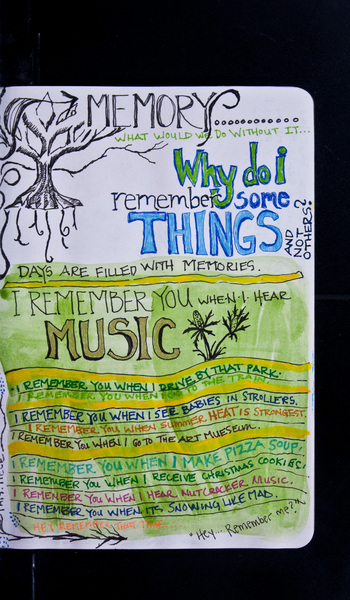 MEMORY............
WHAT WOULD WE DO WITHOUT IT...
Why do i
remember some
THINGS
AND NOT OTHERS?
DAYS ARE FILLED WITH MEMORIES.
I REMEMBER YOU WHEN I HEAR
MUSIC
I REMEMBER YOU WHEN I DRIVE BY THAT PARK.
I REMEMBER YOU WHEN I GO TO THE TRAIN.
I REMEMBER YOU WHEN I SEE BABIES IN STROLLERS.
I REMEMBER YOU WHEN SUMMER HEAT IS STRONGEST.
I REMEMBER YOU WHEN I GO TO THE ART MUESEUM.
I REMEMBER YOU WHEN I MAKE PIZZA SOUP.
I REMEMBER YOU WHEN I RECEIVE CHRISTMAS COOKIES!
I REMEMBER YOU WHEN I HEAR NUTCRACKER MUSIC.
I REMEMBER YOU WHEN ITS SNOWING LIKE MAD.
HEY REMEMBER THAT TIME....
"Hey... Remember me?"